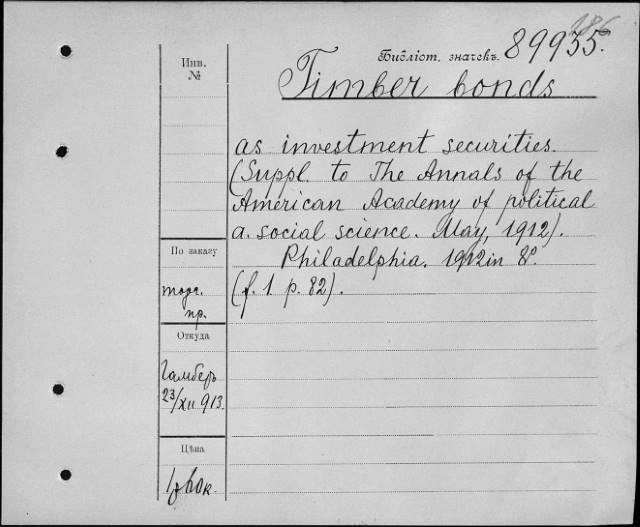 186
Библіот. значекъ. 89955.
Инв.
№
Timber bonds
as investment securities.
(Suppl. to The Annals of the
American Academy of political
a. social science. May, 1912).
По заказу
Philadelphia. 1912 in 8°.
(f. 1. p. 82).
пр.
Откуда
Гамберъ
23/XII 913.
Цѣна